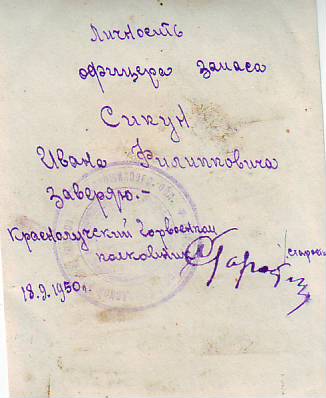 Личность
офицера запаса
Сикун
Ивана Филипповича
заверяю.-
Краснолучский Горвоенком
полковник
18.9.1950г.